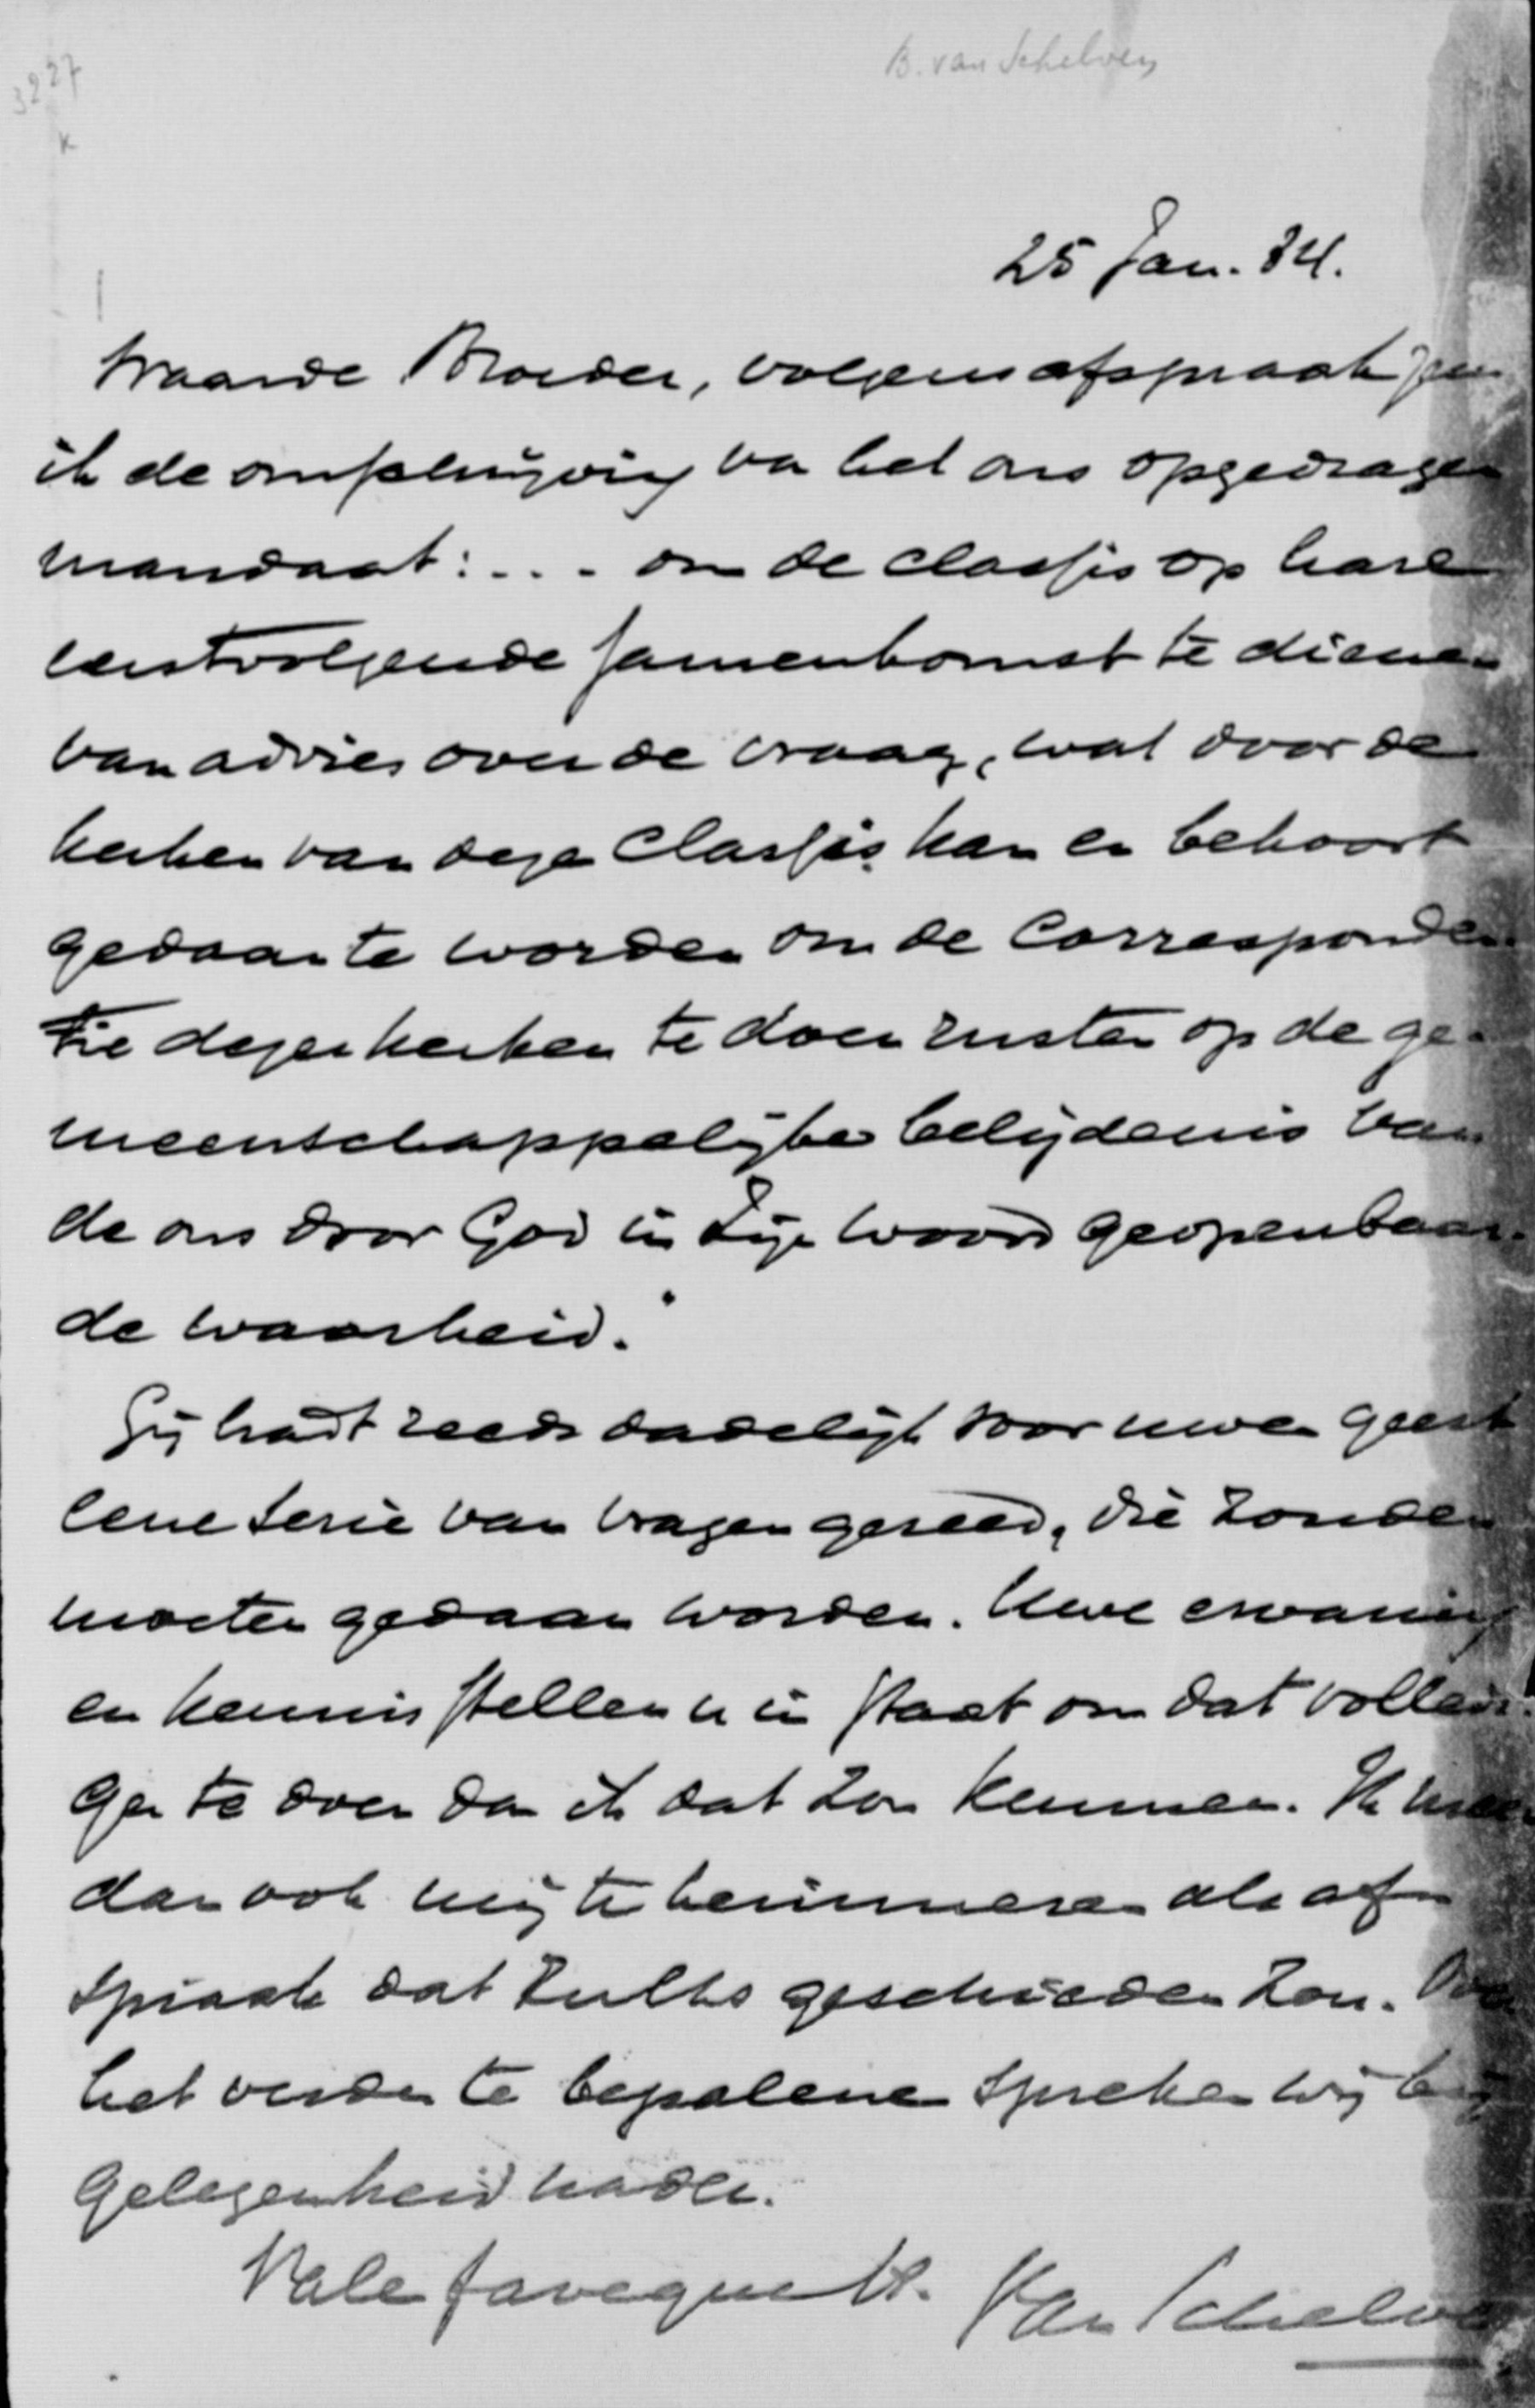 B. van Schelven
3227
K
25 Jan. 84.
Waarde Broeder, volgens afspraak
ik de omschrijving van het ons opgedragen
mandaat: ... om de classis op hare
eerstvolgende samenkomst te dienen
van advies over de vraag, wat door de
kerken van deze Classis kan en behoort
gedaan te worden om de Corresponden-
tie dezer kerken te doen rusten op de ge-
meenschappelijke belijdenis van
de ons door God in Zijn woord geopenbaar-
de waarheid."
Gij hadt reeds dadelijk voor uwen geest
eene serie van vragen gereed, die zouden
moeten gedaan worden. Uwe ervaring
en kennis stellen u in staat om dat volledi-
ger te doen dan ik dat zou kunnen. Ik meen
dan ook mij te herinneren als af-
spraak dat zulks geschieden zou. Over
het verder te bepalene spreken wij bij
gelegenheid nader.
Vale faveque tt. Van Schelven